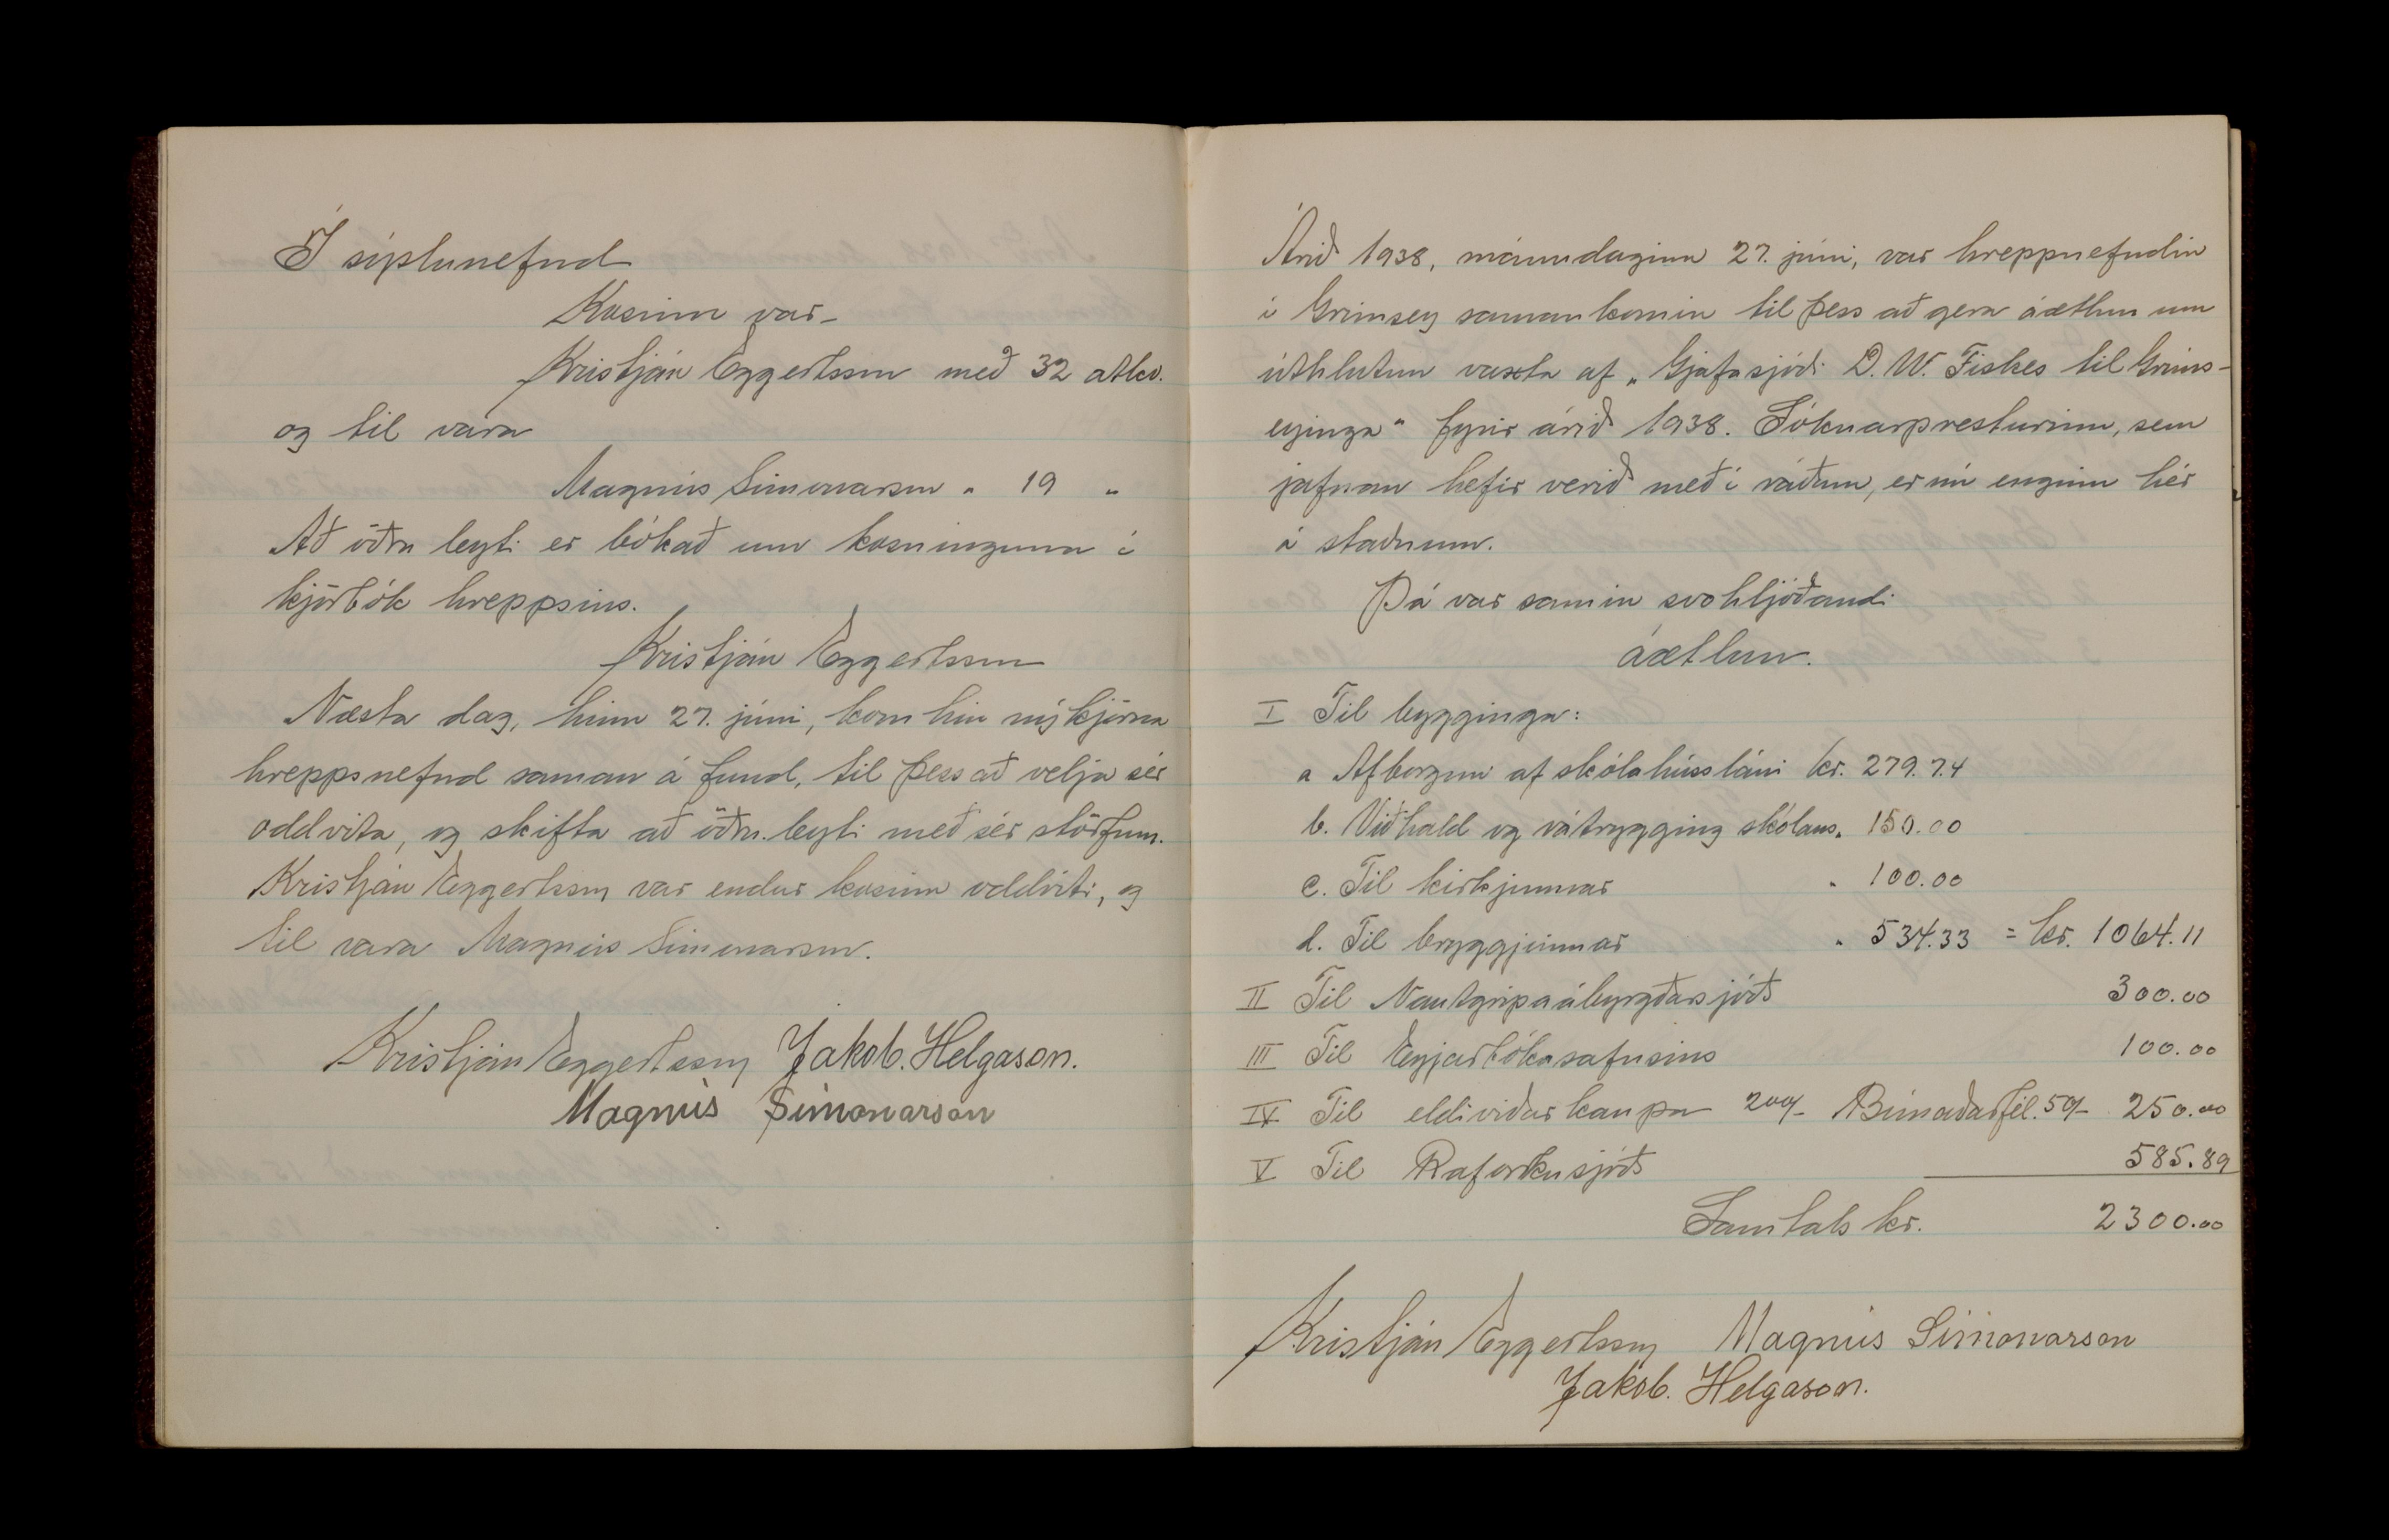 Í sýslunefnd
Kosinn var
Kristján Eggertsson með 32 atkv.
og til vara
Magnús Símonarson " 19 "
Að öðru leyti er bókað um kosninguna í
kjörbók hreppsins.
Kristján Eggertsson
Næsta dag, hinn 27. júní, kom hin nýkjörna
hreppsnefnd saman á fund, til þess að velja sér
oddvita, og skifta að öðru leyti með sér störfum.
Kristján Eggertsson var endur kosinn oddviti, og
til vara Magnús Símonarson.
Kristján Eggertsson Jakob. Helgason.
Magnús Símonarson
Árið 1938, mánudaginn 27. júní, var hreppnefndin
í Grímsey samankomin til þess að gera áætlun um
úthlutun vaxta af „Gjafasjóði D. W. Fiskes til Gríms-
eyinga" fyrir árið 1938. Sóknarpresturinn, sem
jafnan hefir verið með í ráðum, er nú enginn hér
á staðnum.
Þá var samin svohljóðandi
áætlun.
I Til bygginga:
a Afborgun af skólahússláni kr. 279.74
b. Viðhald og vátrygging skólans " 150.00
c. Til kirkjunnar " 100.00
d. Til bryggjunnar " 534.33 = kr. 1064.11
II Til Nautgripaábyrgðarsjóðs 300.00
III Til Eyjarbókasafnsins 100.00
IV Til eldiviðarkaupa 200/- Búnaðarfél. 50/- 250.00
V Til Raforkusjóðs 585.89
Samtals kr. 2300.00
Kristján Eggertsson Magnús Símonarson
Jakob. Helgason.